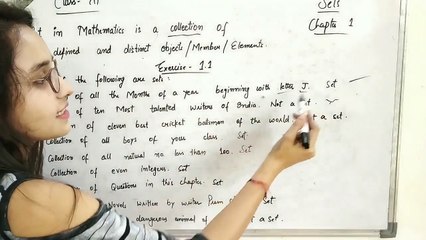 Class - XI Sets
Chapter 1
in Mathematics is a collection of
defined and distinct objects / Member / Elements.
Exercise - 1.1
the following are sets:
of all the Months of a year beginning with letter J. Set
of ten Most talented writers of India. Not a Set
of eleven best cricket batsman of the world. a set.
Collection of all boys of your class Set
Collection of all natural no. less than 100. Set
Collection of even integers. Set
of Questions in this chapter. Set
written by writer Set
dangerous animal of a set.